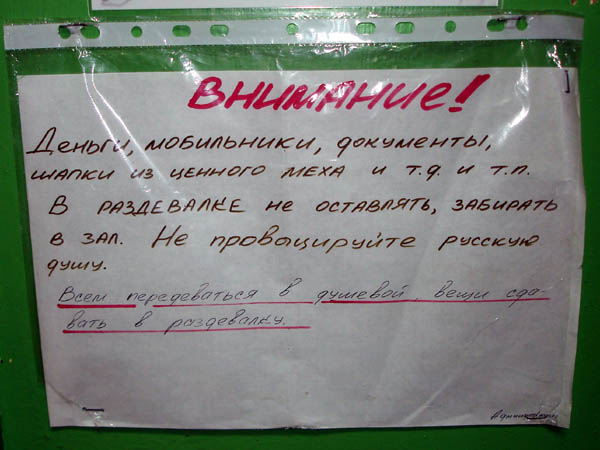 ВНИМАНИЕ!
Деньги, мобильники, документы,
шапки из ценного меха и т.д. и т.п.
В раздевалке не оставлять, забирать
в зал. Не провоцируйте русскую
душу.
Всем передеваться в душевой, вещи сда-
вать в раздевалку.